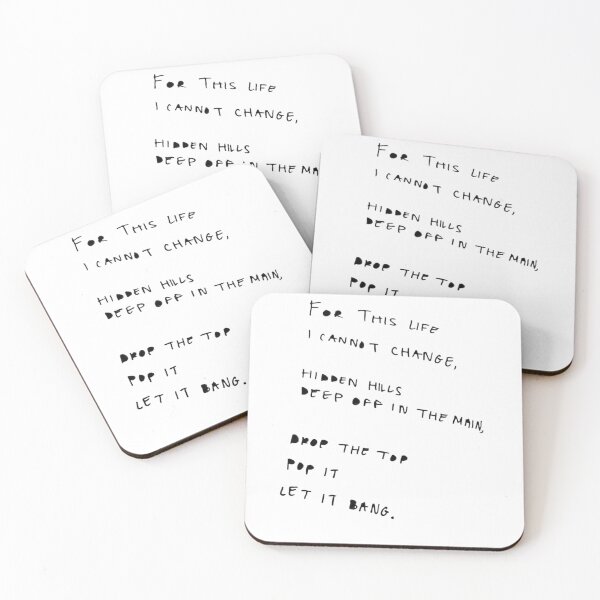 FOR THIS LIFE
I CANNOT CHANGE,
HIDDEN HILLS
DEEP OFF IN THE MA
FOR THIS LIFE
I CANNOT CHANGE,
HIDDEN HILLS
DEEP OFF IN THE MAIN,
DROP THE TOP
POP IT
FOR THIS LIFE
I CANNOT CHANGE,
HIDDEN HILLS
DEEP OFF IN THE MAIN,
DROP THE TOP
POP IT
LET IT BANG.
FOR THIS LIFE
I CANNOT CHANGE,
HIDDEN HILLS
DEEP OFF IN THE MAIN,
DROP THE TOP
POP IT
LET IT BANG.